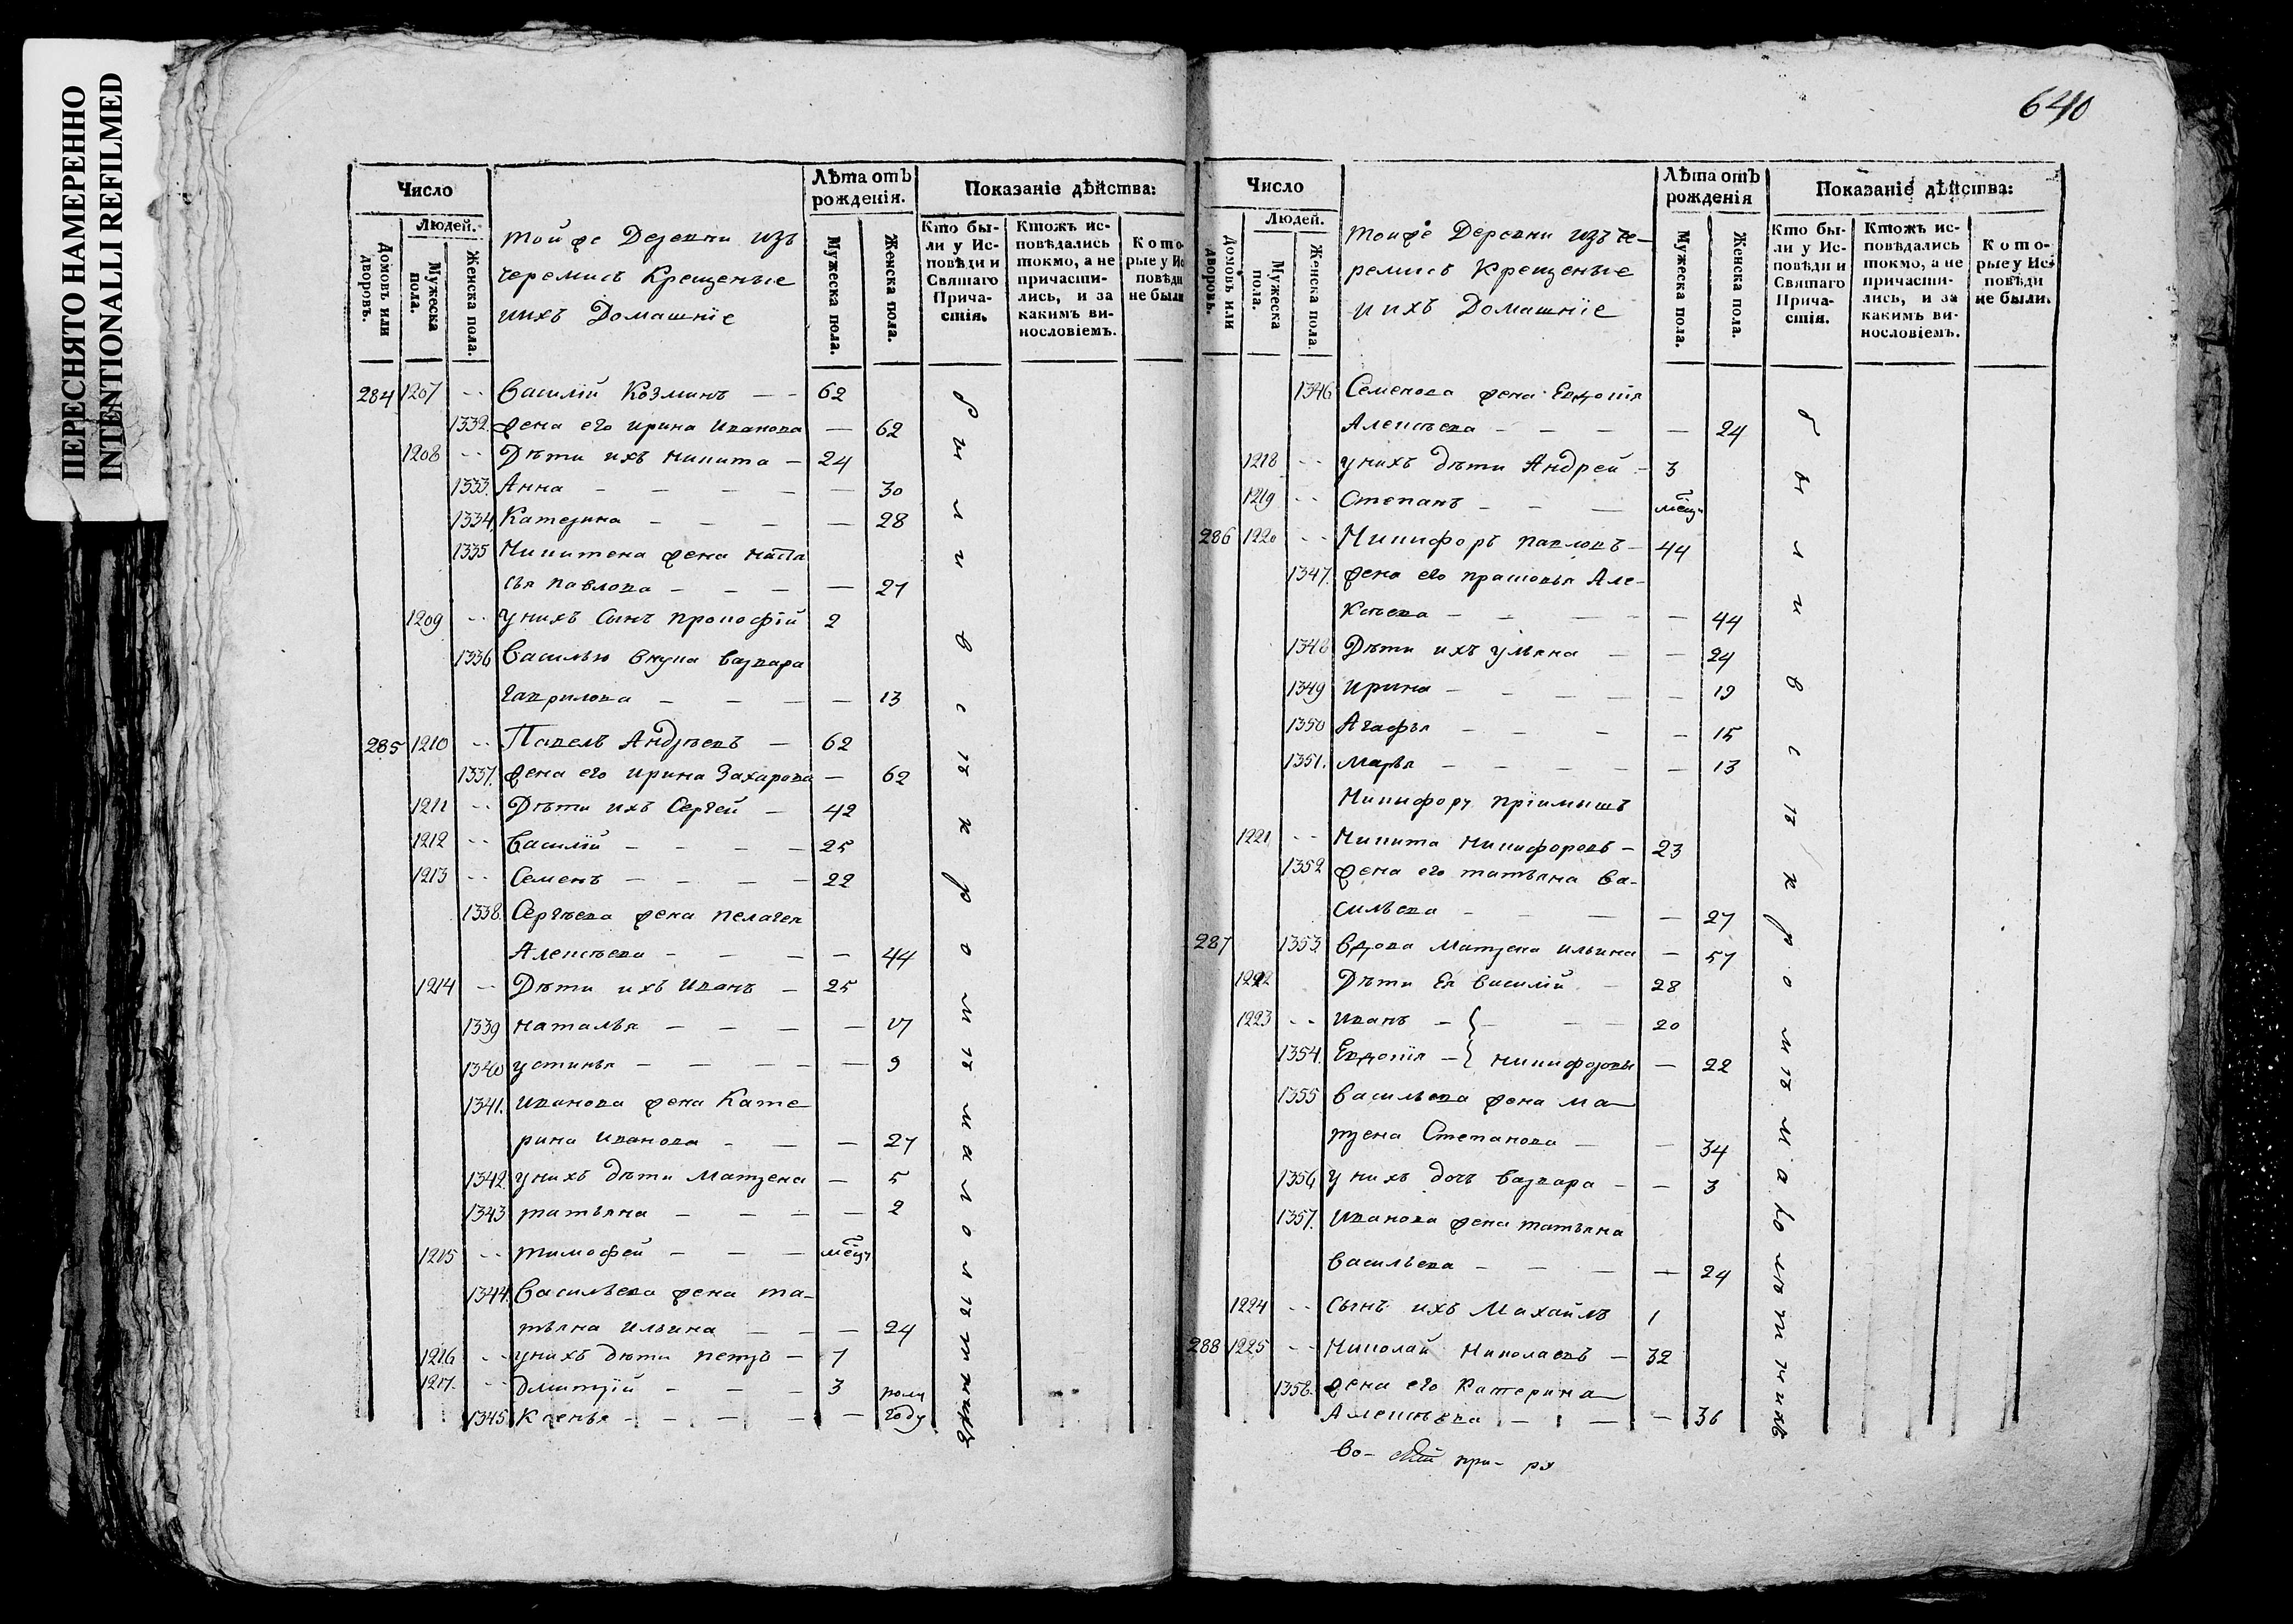 ПЕРЕСНЯТО НАМЕРЕННО
INTENTIONALLI REFILMED
Число
Людей.
Домовъ или дворовъ.
Мужеска пола.
Женска пола.
той же Деревни изъ
черемисъ Крещеные
иихъ Домашніе
Лѣта отъ рожденія.
Мужеска пола.
Женска пола.
Показаніе дѣйства:
Кто были у Исповѣди и Святаго Причастія.
Ктожъ исповѣдались токмо, а не причастились, и за какимъ винословіемъ.
Которые у Исповѣди не были
284 1207 -- Василій Козминъ — - 62
1332. жена его ирина Иванова — 62
1208 -- Дѣти ихъ никита - 24
1333. Анна - — — - — — 30
1334 Катерина — - — - — 28
1335 Никитена жена наста
сья павлова — - — - — 27
1209 -- у нихъ Сынъ прокофій 2
1336 Василью внука варвара
гаврилова — - — - — 13
285 1210 -- Павелъ Андреевъ — 62
1337. жена его ирина Захарова — 62
1211 -- Дѣти ихъ Сергей - 42
1212 -- Василій — - - - 25
1213 -- Семенъ — - - - 22
1338. Сергѣева жена пелагея
Алексѣева — - — - — 44
1214 -- Дѣти ихъ Иванъ - 25
1339 наталья — — - — — 17
1340 устинья — — — - — 9
1341. Иванова жена Кате
рина Иванова - — — 27
1342. у нихъ дѣти матрена — 5
1343 татьяна — - — - — 2
1215 -- тимофей — - — - мѣцъ
1344. Васильева жена та-
тьяна Ильина — — — 24
1216 -- у нихъ дѣти петръ - 7
1217. -- дмитрій - — - 3
1345 Ксенья - - - - — полу году
были всѣ кромѣ малолѣтнихъ
640
Число
Людей.
Домовъ или дворовъ.
Мужеска пола.
Женска пола.
тойже Деревни изъ че-
ремисъ Крещеные
и ихъ Домашніе
Лѣта отъ рожденія
Мужеска пола.
Женска пола.
Показаніе дѣйства:
Кто были у Исповѣди и Святаго Причастія.
Ктожъ исповѣдались токмо, а не причастились, и за какимъ винословіемъ.
Которые у Исповѣди не были.
1346 Семенова жена Евдокія
Алексѣева - — — — 24
1218 -- у нихъ дѣти Андрей - 3
1219 -- Степанъ - - — мѣцъ
286 1220 -- Никифоръ павловъ - 44
1347. жена его прасковья Але-
ксѣева — - — - — 44
1348 Дѣти ихъ ульяна — — 24
1349 ирина — - — — — 19
1350 Агафья - — - - 15
1351. марья — - — - — 13
Никифору пріимышъ
1221 -- Никита никифоровъ - 23
1352 жена его татьяна Ва-
сильева - — — — 27
287 1353. вдова матрена ильина — 57
1222 Дѣти Ея василій - 28
1223 -- Иванъ - - — 20
1354. Евдокія - никифоровы — 22
1355 Васильева жена ма
трена Степанова — — 34
1356 у нихъ дочь варвара - — 3
1357. Иванова жена татьяна
Васильева - — — — 24
1224 -- Сынъ ихъ Михайлъ 1
288 1225 -- Николай Николаевъ — 32
1358. жена его Катерина
Алексѣева - - — — 36
были всѣ кромѣ малолѣтнихъ